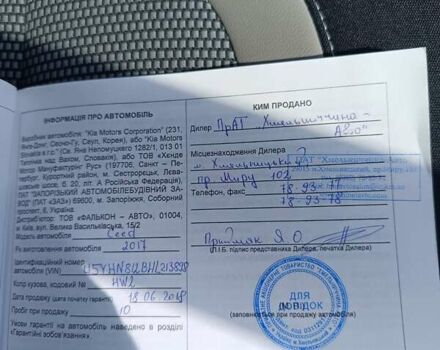 ІНФОРМАЦІЯ ПРО АВТОМОБІЛЬ
Виробник автомобіля: "Kia Motors Corporation" (231,
Янге-Донг, Сеочо-Гу, Сеул, Корея), або "Kia Motors
Slovakia s.r.o." (Св. Яна Непомуцкего 1282/1, 013 01
Тепличка над Вахом, Словакія), або ТОВ «Хенде
Мотор Мануфактуринг Рус» (197706, Санкт – Пе-
тербург, Курортний район, м. Сестрорецк, Лева-
шовське шосе, б. 20, літ. А Російська Федерація),
або "ЗАПОРІЗЬКИЙ АВТОМОБІЛЕБУДІВНИЙ ЗА-
ВОД (ПАТ «ЗАЗ») 69600, м. Запоріжжя, Соборний
проспект, 8, Україна
Дистриб'ютор: ТОВ «ФАЛЬКОН – АВТО», 01004,
м. Київ, вул. Велика Васильківська, 15/2
Модель автомобіля Ceed
Рік виготовлення автомобіля 2017
Ідентифікаційний номер
автомобіля (VIN)
Колір кузова, кодовий № HW2
Дата продажу (дата початку гарантії) 18 06 2018
Пробіг при продажу 10
Умови гарантії на автомобіль наведено в розділі
«Гарантійні зобов'язання».
КИМ ПРОДАНО
Дилер ПрАТ „Хмельниччина –
Авто"
Місцезнаходження Дилера
м. Хмельницький
пр. Миру 102
Телефон, факс 78-93-77
78-93-78
(П.І.Б. підпис представника Дилера, печатка Дилера)
ДЛЯ
ДОВІДОК
М.П.
(заповнюється при продажу автомобіля)